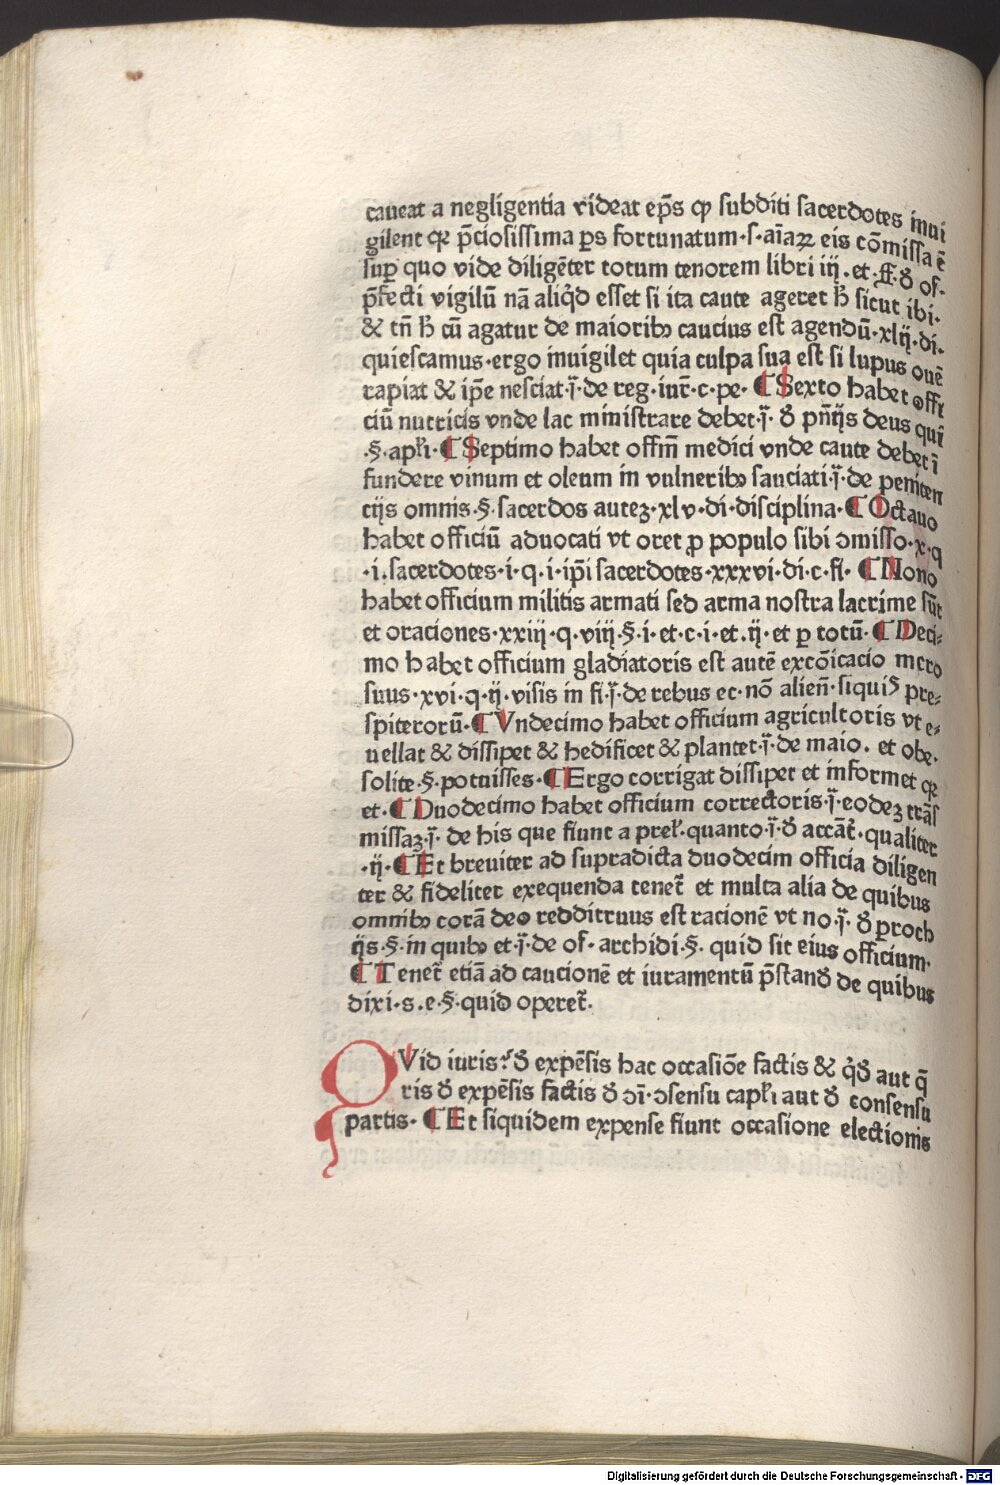 caueat a negligentia videat ep̄s ꝙ subditi sacerdotes inui
gilent qꝛ p̄ciosissima ꝑs fortunatum·s·aīaꝝ eis cōmissa ē
suꝑ quo vide diligēter totum tenorem libri iij.et·ff·ꝺ̄ of·
p̄fecti vigilū nā aliqͥd esset si ita caute ageret h̄ sicut ibi·
& tn̄ h̄ cū agatur de maioribꝫ caucius est agendū·xlij·di·
quiescamus·ergo inuigilet quia culpa sua est si lupus ouē
rapiat & ip̄e nesciat·j̄·de reg·iur̄·c·pe· ¶ Sexto habet offi
ciū nutricis vnde lac ministrare debet·j̄·ꝺ̄ pn̄ijs deus qui
·§·apl̄i·¶ Septimo habet offm̄ medici vnde caute debet ī
fundere vinum et oleum in vulneribꝫ sauciati·j̄·de peniten
ciis omnis·§·sacerdos auteꝫ·xlv·di·disciplina·¶ Octauo
habet officiū aduocati vt oret ꝓ populo sibi ↄmisso·x·q
·i.sacerdotes·i·q·i·ip̄i sacerdotes·xxxvi·di·c·fi· ¶ Nono
habet officium militis armati sed arma nostra lacrime sūt
et oraciones·xxiij·q·viij·§·i·et·c·i·et·ij·et ꝑ totū·¶ Deci-
mo habet officium gladiatoris est autē excōicacio mcro
suus·xvi·q·ij·visis in fi·j̄·de rebus ec·nō alien̄·siquis pre-
spiterorū·¶ Vndecimo habet officium agricultoris vt e-
uellat & dissipet & hedificet & plantet·j̄·de maio. et obe·
solite·§·potuisses·¶ Ergo corrigat dissipet et informet qꝛ
et·¶ Duodecimo habet officium correctoris·j̄·eodeꝫ trās
missaꝫ·j̄· de his que fiunt a prel̄·quanto·j̄·ꝺ̄ accāt̄·qualiter
·ij·¶ Et breuiter ad supradicta duodecim officia diligen
ter & fideliter exequenda tenet̄ et multa alia de quibus
omnibꝫ corā deo redditruus est racionē vt no·j̄·ꝺ̄ ꝑroch
ijs·§·in quibꝫ et·j̄·de of· archidi·§. quid sit eius officium·
¶ Tenet̄ etiā ad caucionē et iuramentū p̄stanꝺ̄ de quibus
dixi·s.e·§·quid operet̄.
QVid iuris? ꝺ̄ expēsis hac occasiōe factis & qͥꝺ̄ aut q̄
ris ꝺ̄ expēsis factis ꝺ̄ ↄī·ↄsensu capl̄i aut ꝺ̄ consensu
partis·¶ Et siquidem expense fiunt occasione electionis
Digitalisierung gefördert durch die Deutsche Forschungsgemeinschaft - DFG